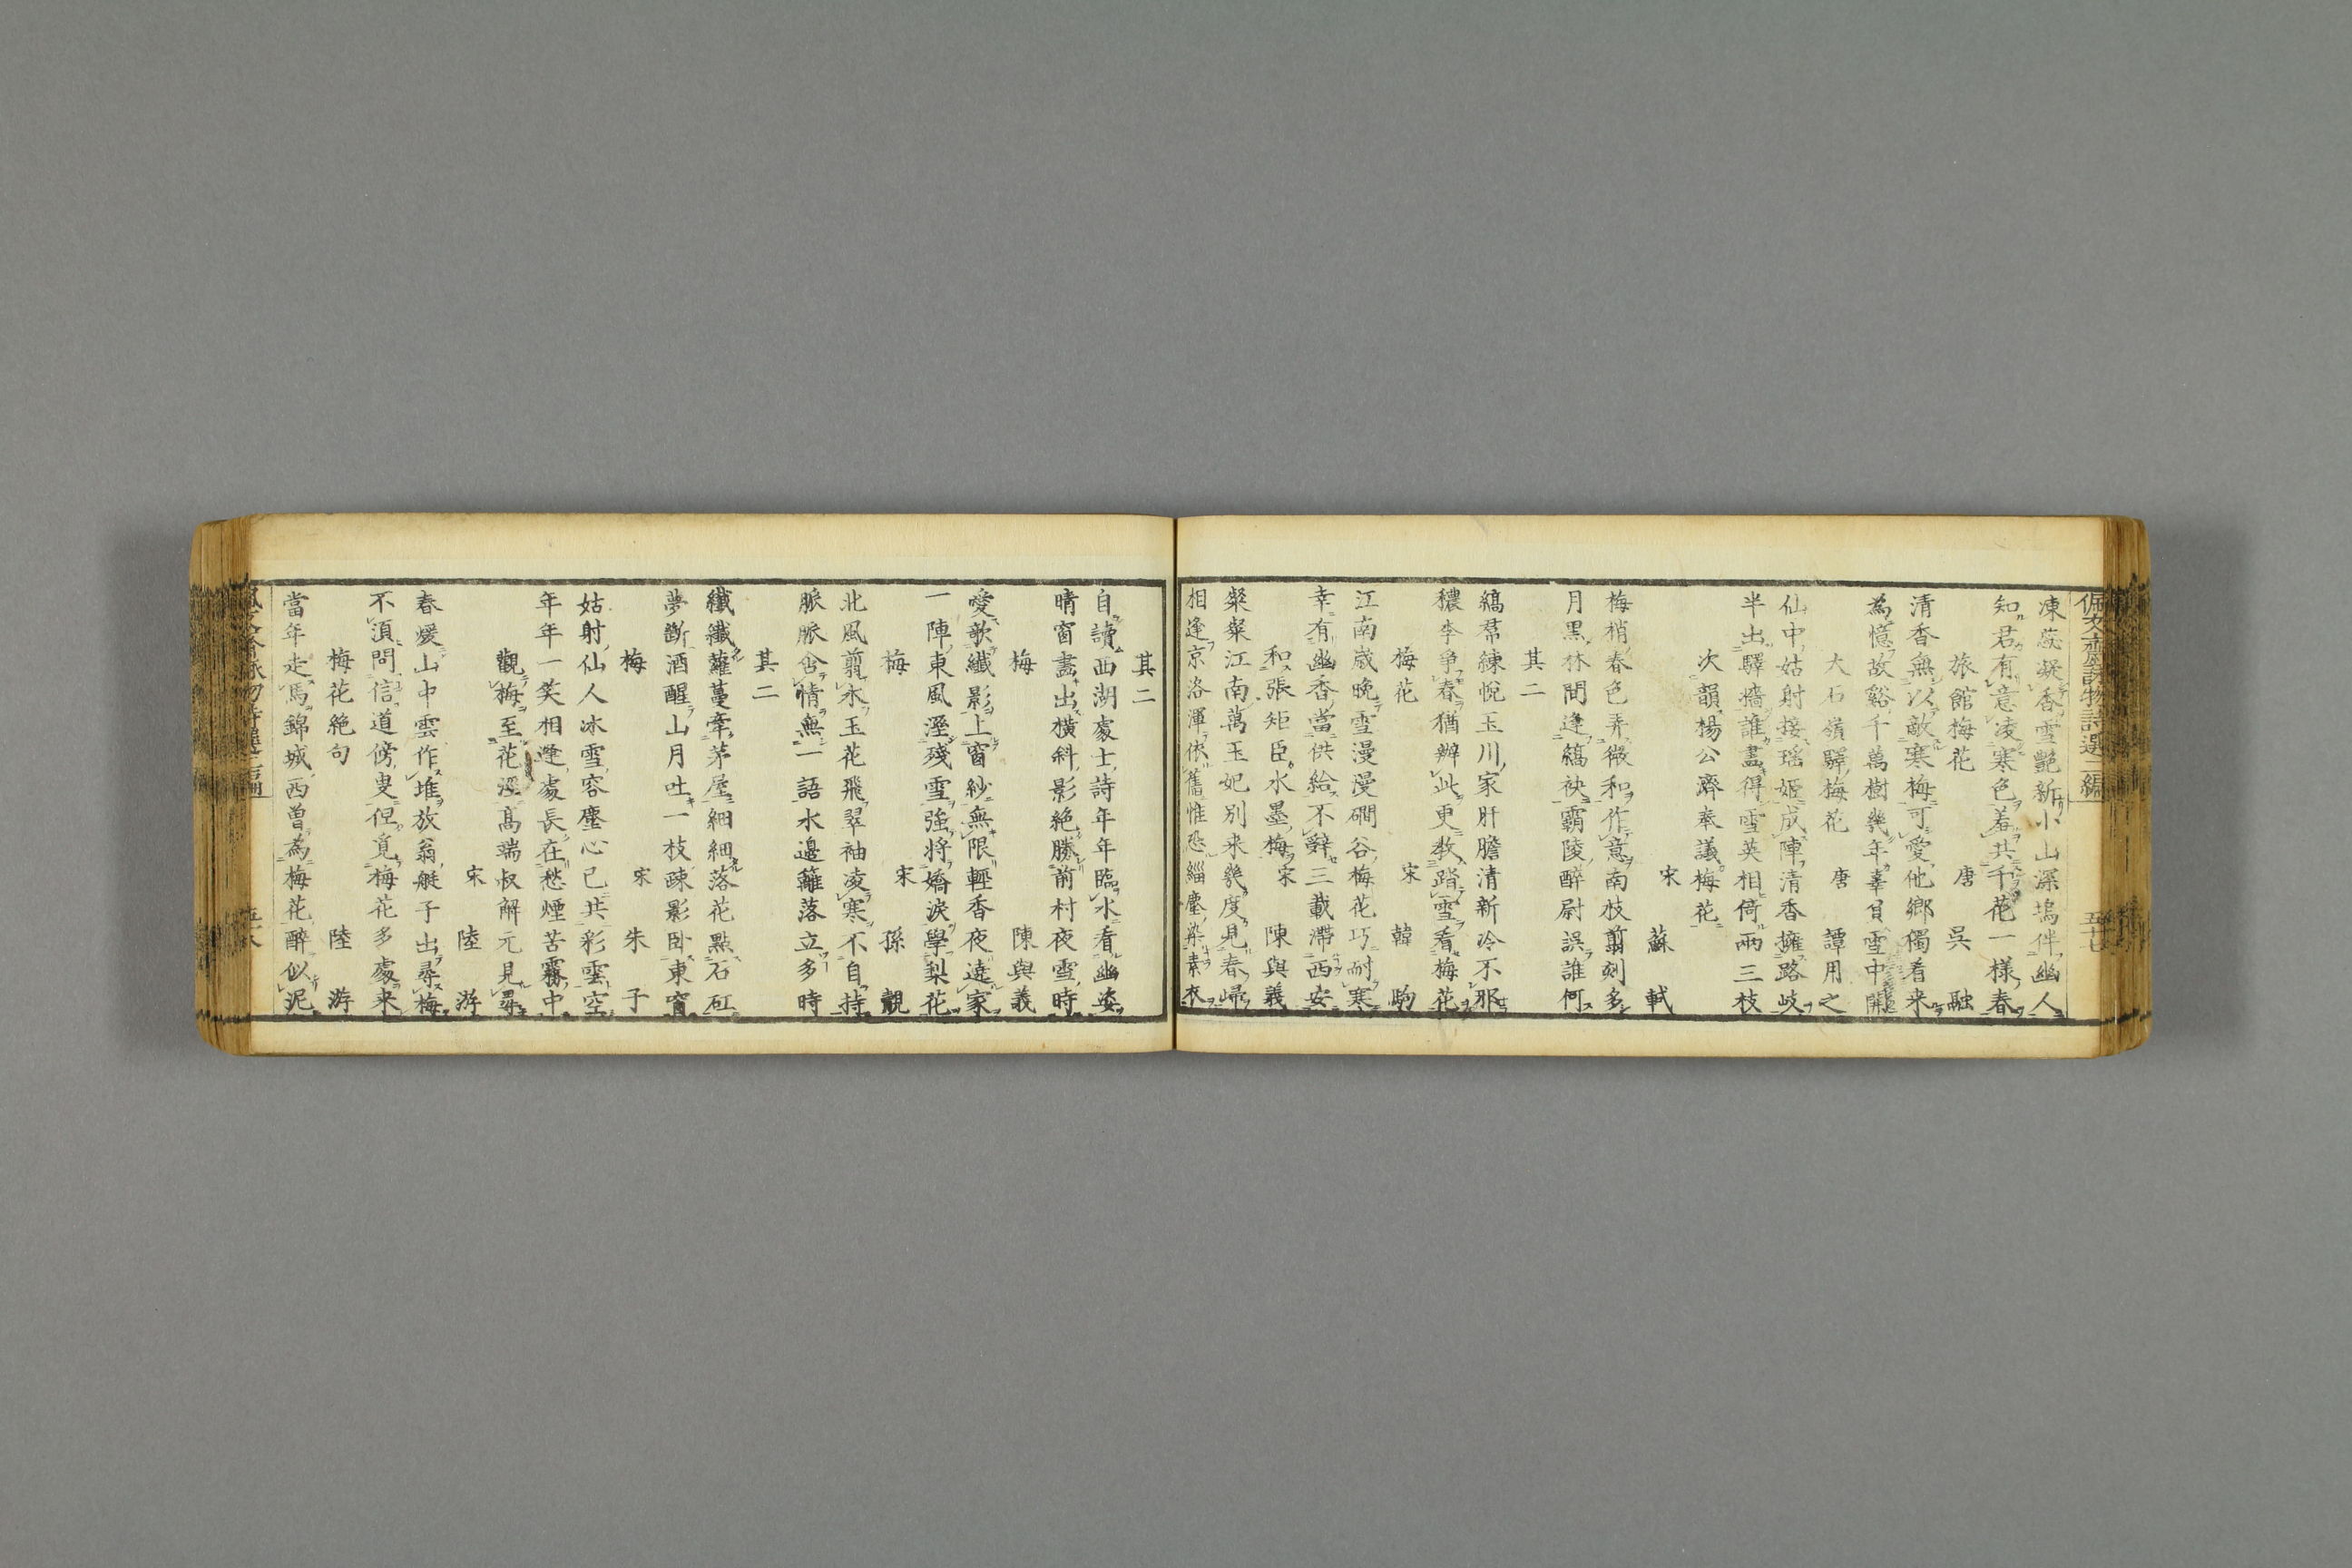 佩文齋詠物詩選二編
五十七
凍蕊凝香雪艷新小山深塢伴幽人
知君有意凌寒色羞共千花一樣春
旅館梅花 唐 吳融
清香無以敵寒梅可愛他鄉獨看来
為憶故谿千萬樹幾年辜負雪中開
大石嶺驛梅花 唐 譚用之
仙中姑射接瑶姬成陣清香擁路岐
半出驛墻誰畫得雪英相倚兩三枝
次韻楊公濟奉議梅花
宋 蘇軾
梅梢春色弄微和作意南枝翦刻多
月黒林間逢縞袂霸陵醉尉誤誰何
其二
縞帬練帨玉川家肝膽清新冷不邪
穠李争春猶辦此更教踏雪看梅花
梅花 宋 韓駒
江南歳晚雪漫漫磵谷梅花巧耐寒
幸有幽香當供給不辭三載滯西安
和張矩臣水墨梅 宋 陳與義
粲粲江南萬玉妃別来幾度見春歸
相逢京洛渾依舊惟恐緇塵染素衣
其二
自讀西湖處士詩年年臨水看幽姿
晴窗畫出橫斜影絶勝前村夜雪時
梅 陳與義
愛歌纖影上窗紗無限輕香夜遶家
一陣東風溼殘雪強将嬌淚學梨花
梅 宋 孫覿
北風翦水玉花飛翠袖凌寒不自持
脈脈含情無一語水邊籬落立多時
其二
纖纖蘿蔓牽茅屋細細落花點石矼
夢斷酒醒山月吐一枝疎影卧東窗
梅 宋 朱子
姑射仙人冰雪容塵心已共彩雲空
年年一笑相逢處長在愁煙苦霧中
觀梅至花涇髙端叔解元見尋
宋 陸游
春煖山中雲作堆放翁艇子出尋梅
不湏問信道傍叟但覓梅花多處来
梅花絶句 陸游
當年走馬錦城西曾為梅花醉似泥